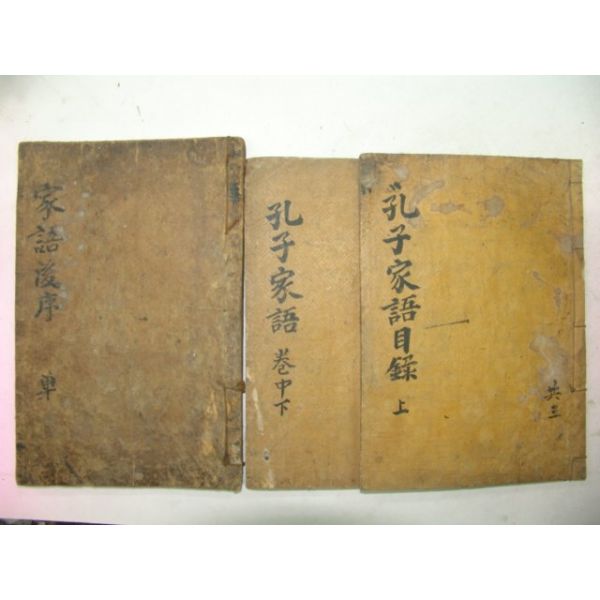 孔子家語目錄 上
共三
孔子家語 卷中下
家語後序 單